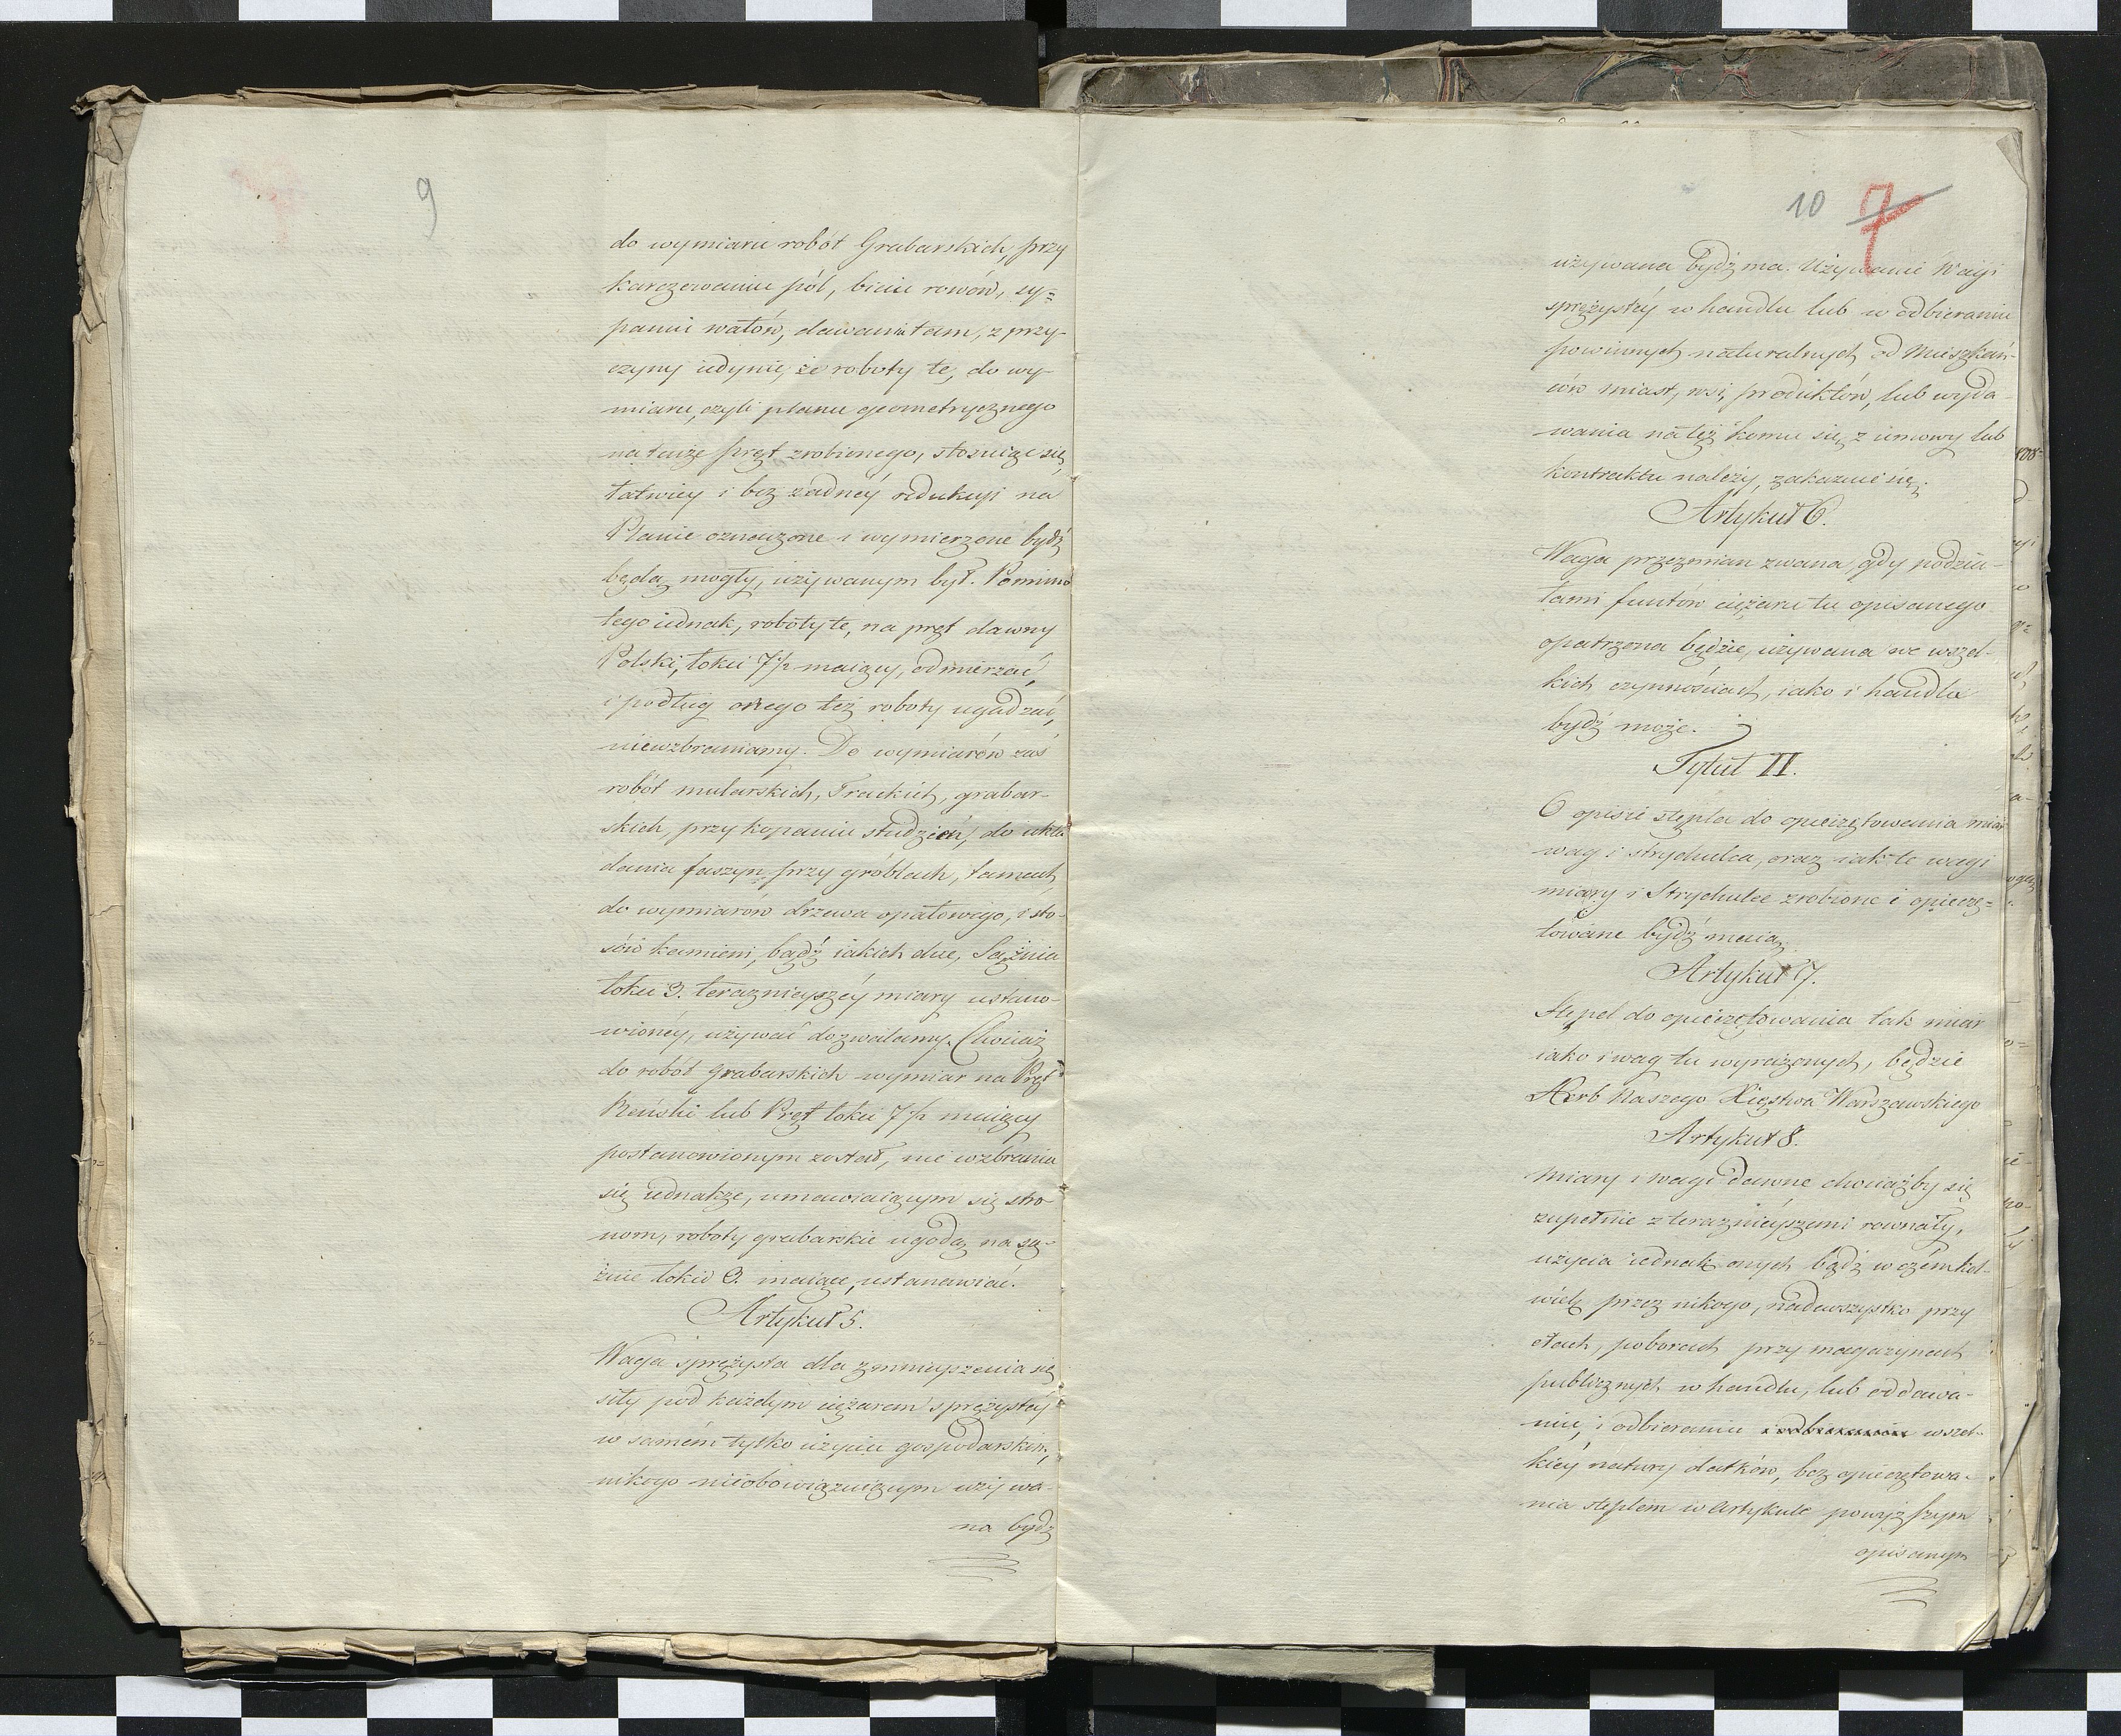 9
do wymiaru robót Grabarskich, przy
karczowaniu pól, biciu rowów, sy=
paniu wałów, dawaniu tam, z przy-
czyny iedynie, że roboty te, do wy-
miaru, czyli planu geometrycznego
na tenże pręt zrobionego, stosuiąc się
łatwiey i bez żadnéy redukcyi na
Planie oznaczone i wymierzone bydź
będą mogły, używanym był. Pomimo
tego iednak, roboty te, na pręt dawny
Polski, łokci 7½ maiący, odmierzać,
i podług onego też roboty ugadzać,
niewzbraniamy. Do wymiarów zaś
robót mularskich, Trackich, grabar-
skich, przy kopaniu studzien, do ukła
dania faszyn przy gróblach, tamach,
do wymiarów drzewa opałowego, i sto-
sów kamieni, bądź iakich due, Sążnia
łokci 3. teraznieyszéy miary ustano-
wionéy, używać dozwalamy. Chociaż
do robót grabarskich wymiar na Pręt
Reński lub Pręt łokci 7½ maiący
postanowionym został, nie wzbrania
się iednakże, umawiaiącym się stro
nom, roboty grabarskie ugodą na są-
żnie łokci 3. maiące, ustanawiać.
Artykuł 5.
Waga sprężysta dla zmnieyszenia się
siły pod każdym ciężarem sprężystéy
w samém tylko użyciu gospodarskim,
nikogo nieobowiązuiącym używa-
na bydź
10 7
używana bydź ma. Używanie Wagi
sprężystéy w handlu lub w odbieraniu
powinnych naturalnych od Mieszkań-
ców miast, wsi, produktów, lub wyda-
wania należ komu się z umowy lub
kontraktu należy, zakazuie się.
Artykuł 6.
Waga przezmian zwana, gdy podzia-
łami funtów ciężaru tu opisanego
opatrzona będzie, używana we wszel-
kich czynnościach, iako i handlu
bydź może.
Tytuł II.
O opisie stępla do opieczętowania miar
wag i strychulca, oraz iak te wagi
miary i Strychulce zrobione i opieczę=
towane bydź maią.
Artykuł 7.
Stępel do opieczętowania tak miar
iako i wag tu wyrażonych, będzie
Herb Naszego Xięstwa Warszawskiego
Artykuł 8.
Miary i wagi dawne chociażby się
zupełnie z teraznieyszemi rownały,
użycia iednak onych bądź w czémkol-
wiek przez nikogo, nadewszystko przy
cłach, poborach przy magazynach
publicznych w handlu, lub oddawa-
niu, i odbieraniu i odbieraniu wszel-
kiéy natury datków, bez opieczętowa-
nia stęplem w Artykule powyższym
opisanym